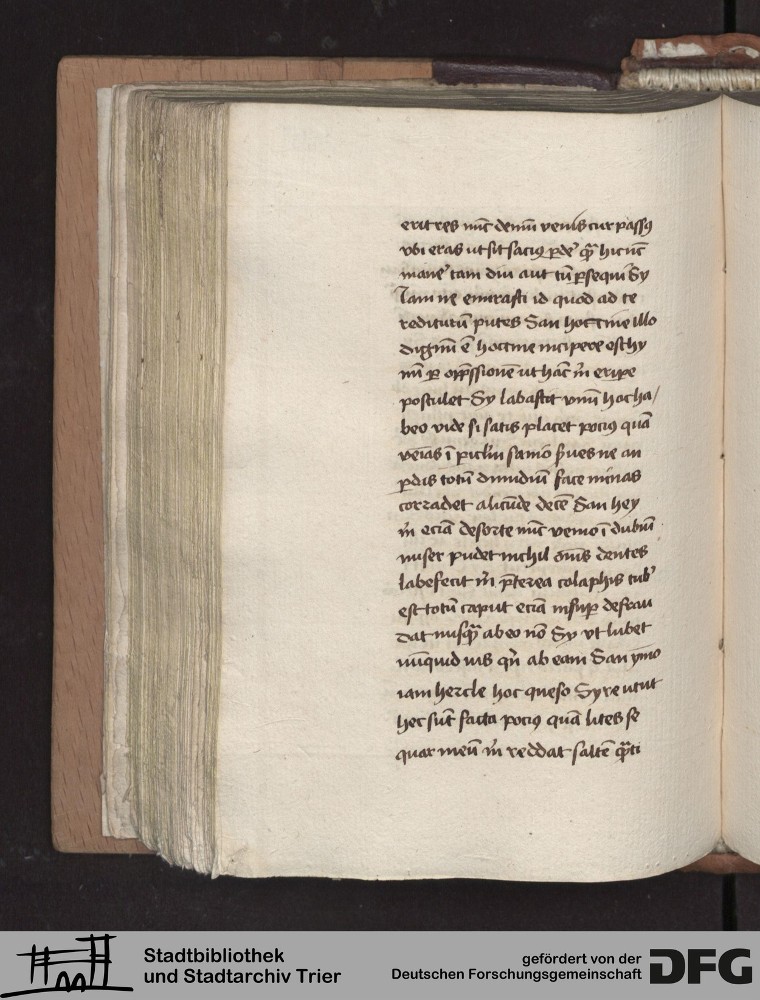 erit res nūc demū venis cur passꝯ
vbi eras ut sit saciꝯ ꝑde' qͣ hic nūc
mane' tam diu aut tū ꝑsequi Sy
Iam ne emtrasti id quod ad te
rediturū putes San hoccine illo
dignū ē hoccine incipere eschy
nū ꝑ opp̄ssione ut hāc m̄ eripe
postulet Sy labascit vnū hoc ha/
beo vide si satis placet pociꝯ quā
veias ī ꝑiclm̄ san ne an
ꝑdis totū dimidiū face minas
corradet alicūde decē San hey
m̄ eciā de sorte nūc venio ī dubiū
miser pudet nichil oīs dentes
labefecit m̄ p̄terea colaphis tub'
est totū caput eciā insuꝑ defrau
dat nusqͣ abeo nō Sy vt lubet
nūquid uis qn̄ abeam San ymo
iam hercle hoc queso Syre utut
hec sūt facta pociꝯ quā lites se
quar meū m̄ reddat saltē qͣti
Stadtbibliothek
und Stadtarchiv Trier
gefördert von der
Deutschen Forschungsgemeinschaft
DFG